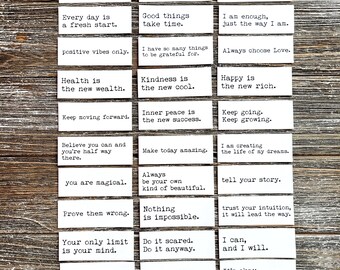 Every day is
a fresh start.
Good things
take time.
I am enough,
just the way I am.
positive vibes only.
I have so many things
to be grateful for.
Always choose Love.
Health is
the new wealth.
Kindness is
the new cool.
Happy is
the new rich.
Keep moving forward.
Inner peace is
the new success.
Keep going.
Keep growing.
Believe you can and
you're half way
there.
Make today amazing.
I am creating
the life of my dreams.
you are magical.
Always
be your own
kind of beautiful.
tell your story.
Prove them wrong.
Nothing
is impossible.
trust your intuition,
it will lead the way.
Your only limit
is your mind.
Do it scared.
Do it anyway.
I can,
and I will.